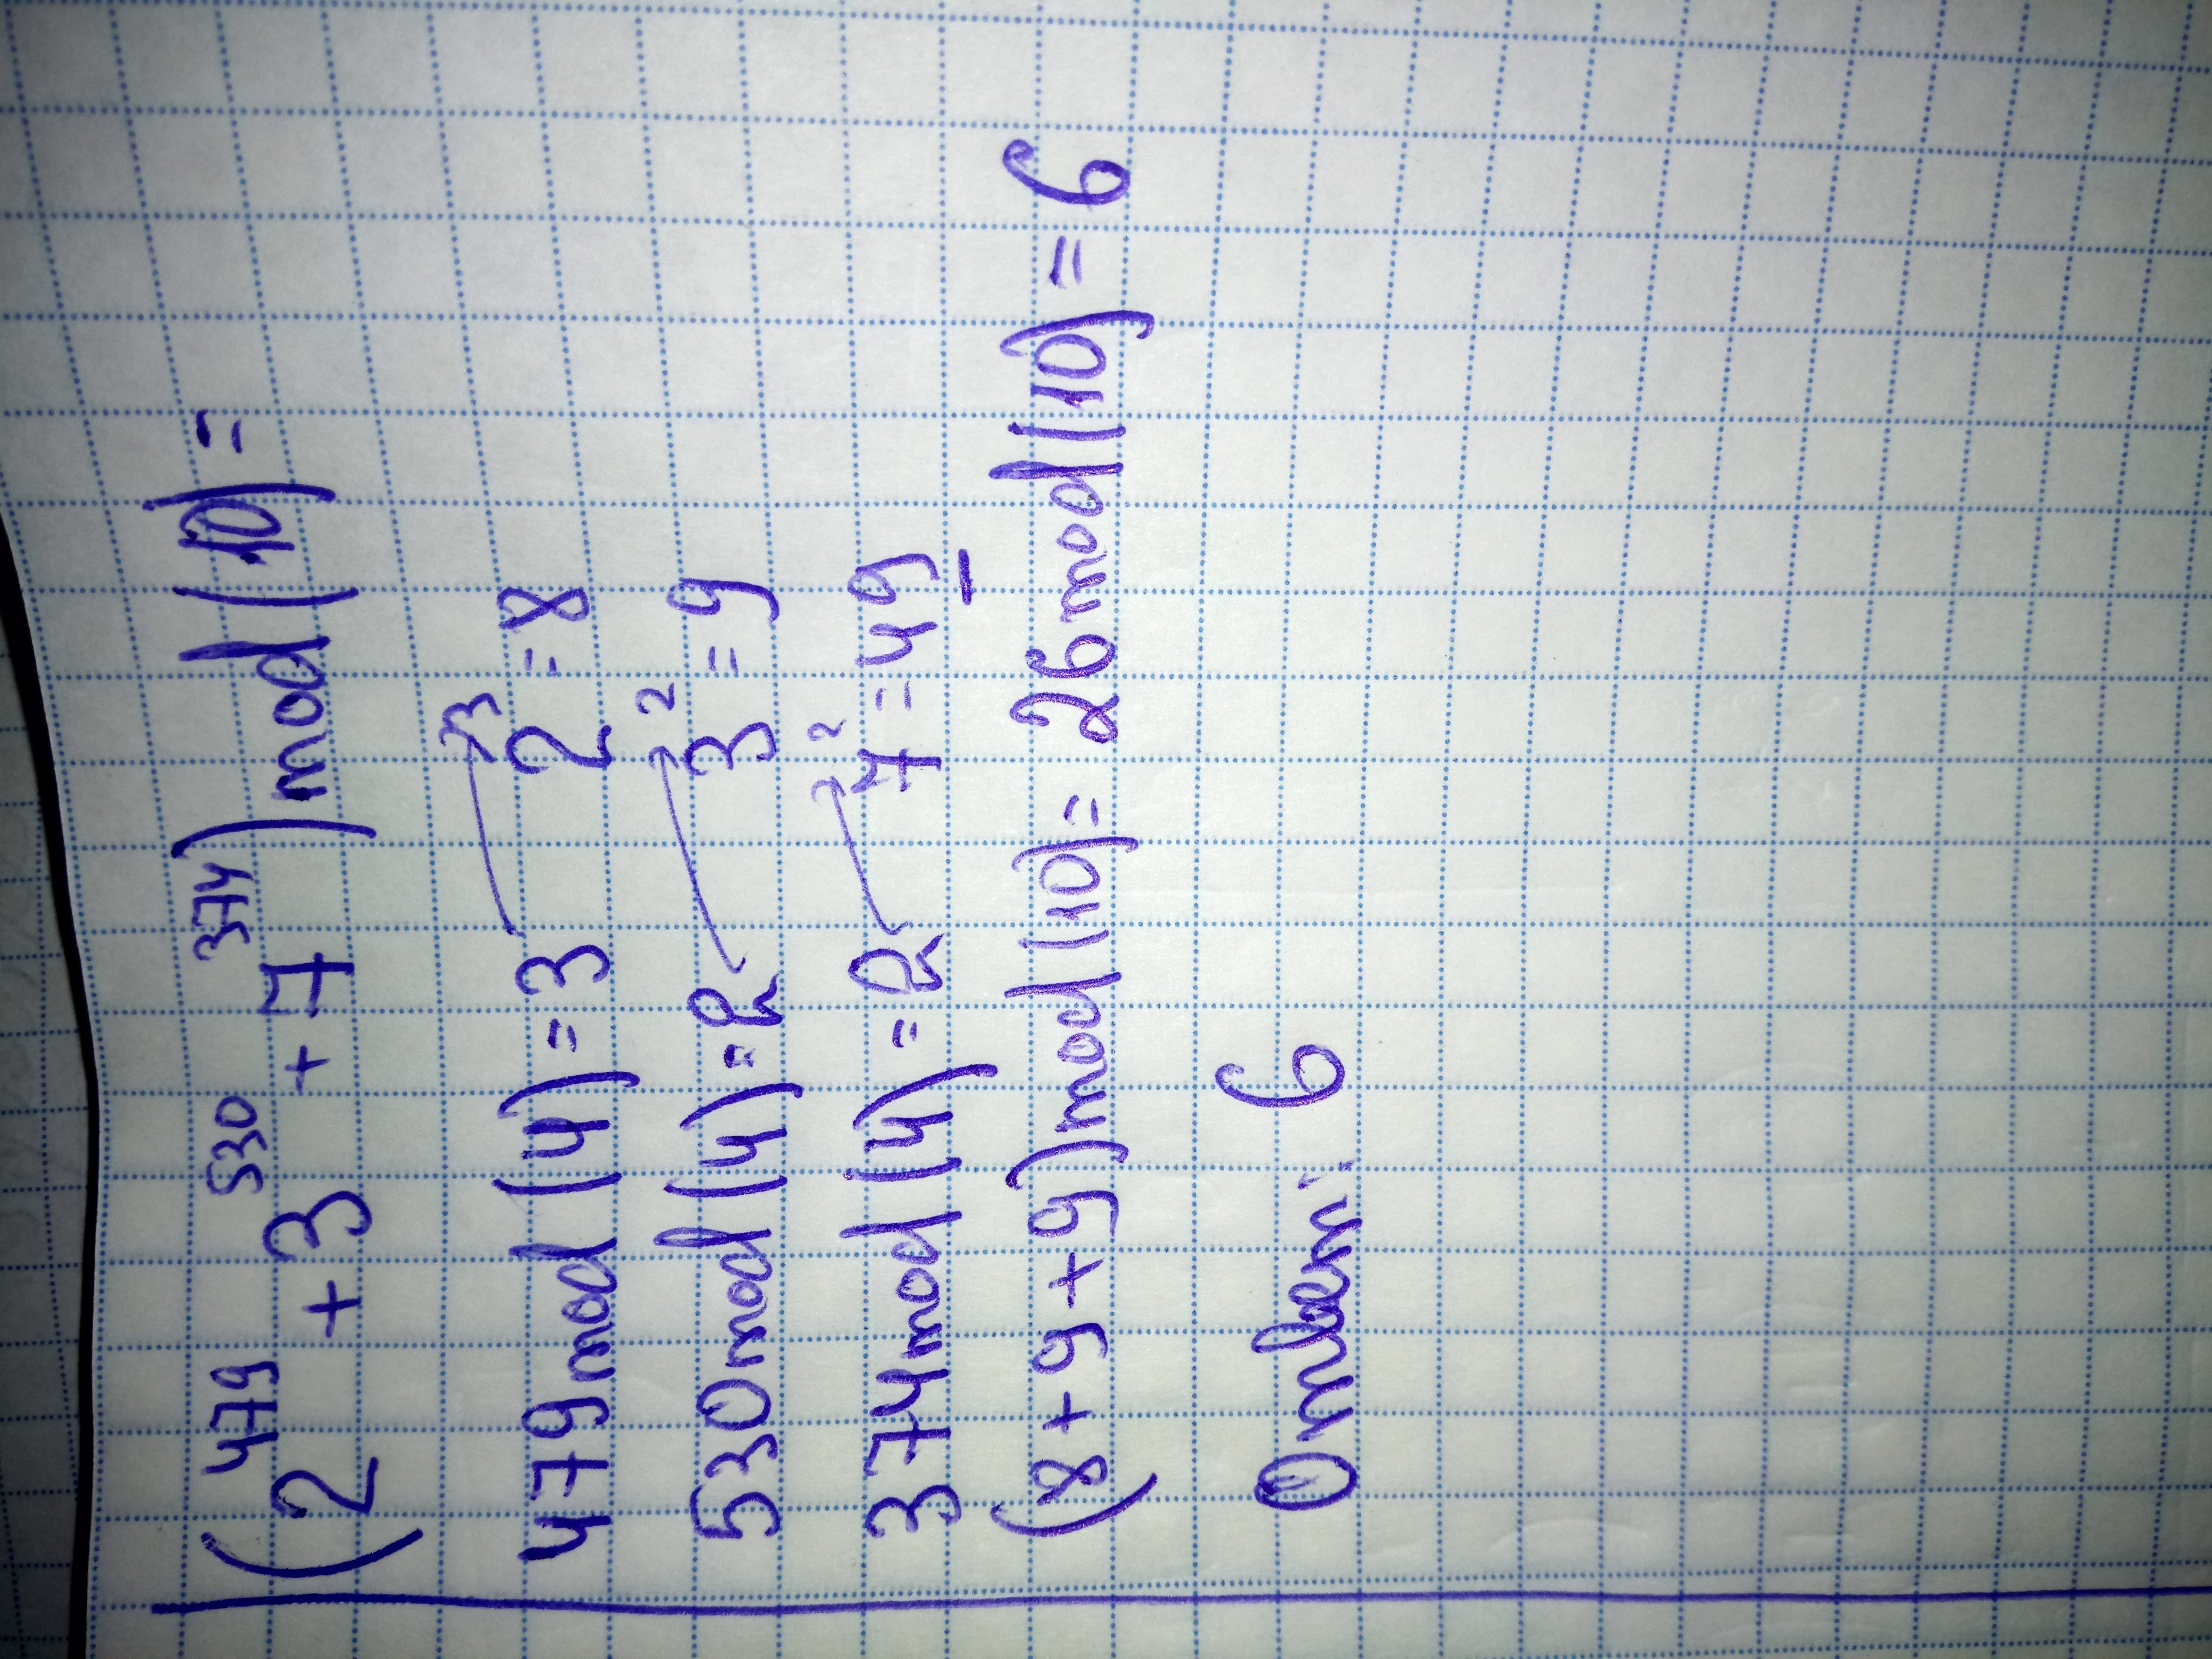 (2^479 + 3^530 + 7^374) mod (10) =
479 mod (4) = 3 2^3 = 8
530 mod (4) = 2 3^2 = 9
374 mod (4) = 2 7^2 = 49
(8 + 9 + 9) mod (10) = 26 mod (10) = 6
Ответ: 6